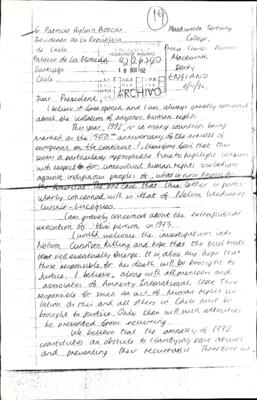 19
Sr. Patricio Aylwin Azocar
Presidente de la República
de Chile
Palacio de la Moneda
Santiago
Chile.
Tertiary
College,
Mackworth
Derby
ENGLAND
18 NOV 92
ARCHIVO
Dear President,
I believe in free speech and I am always greatly concerned
about the violation of anyones human rights.
This year, 1992, is in many countries being
marked as the 500th anniversary of the arrival of
europeans on the continent. I therefore feel that this
seems a particularly appropriate time to highlight concerns
with respect to human rights violations
against indigenous peoples of what is now known as
the Americas. The one case that this letter is partic-
ularly concerned with is that of Nelson
Curiñir Lincoqueo.
I am gravely concerned about the extrajudicial
execution of this person in 1973.
I would welcome the investigations into
Nelson Curiñir's killing and hope that the full truth
will eventually emerge. It is also my hope that
those responsible for his death will be brought to
justice. I believe, along with all members and
associates of Amnesty International that those
responsible for such an act of human rights vio-
lation as this and all others in Chile must be
brought to justice. Only then will such atrocities
be prevented from recurring.
We believe that the amnesty of 1978
constitutes an obstacle to clarifying past abuses
and preventing their recurrence. Therefore we